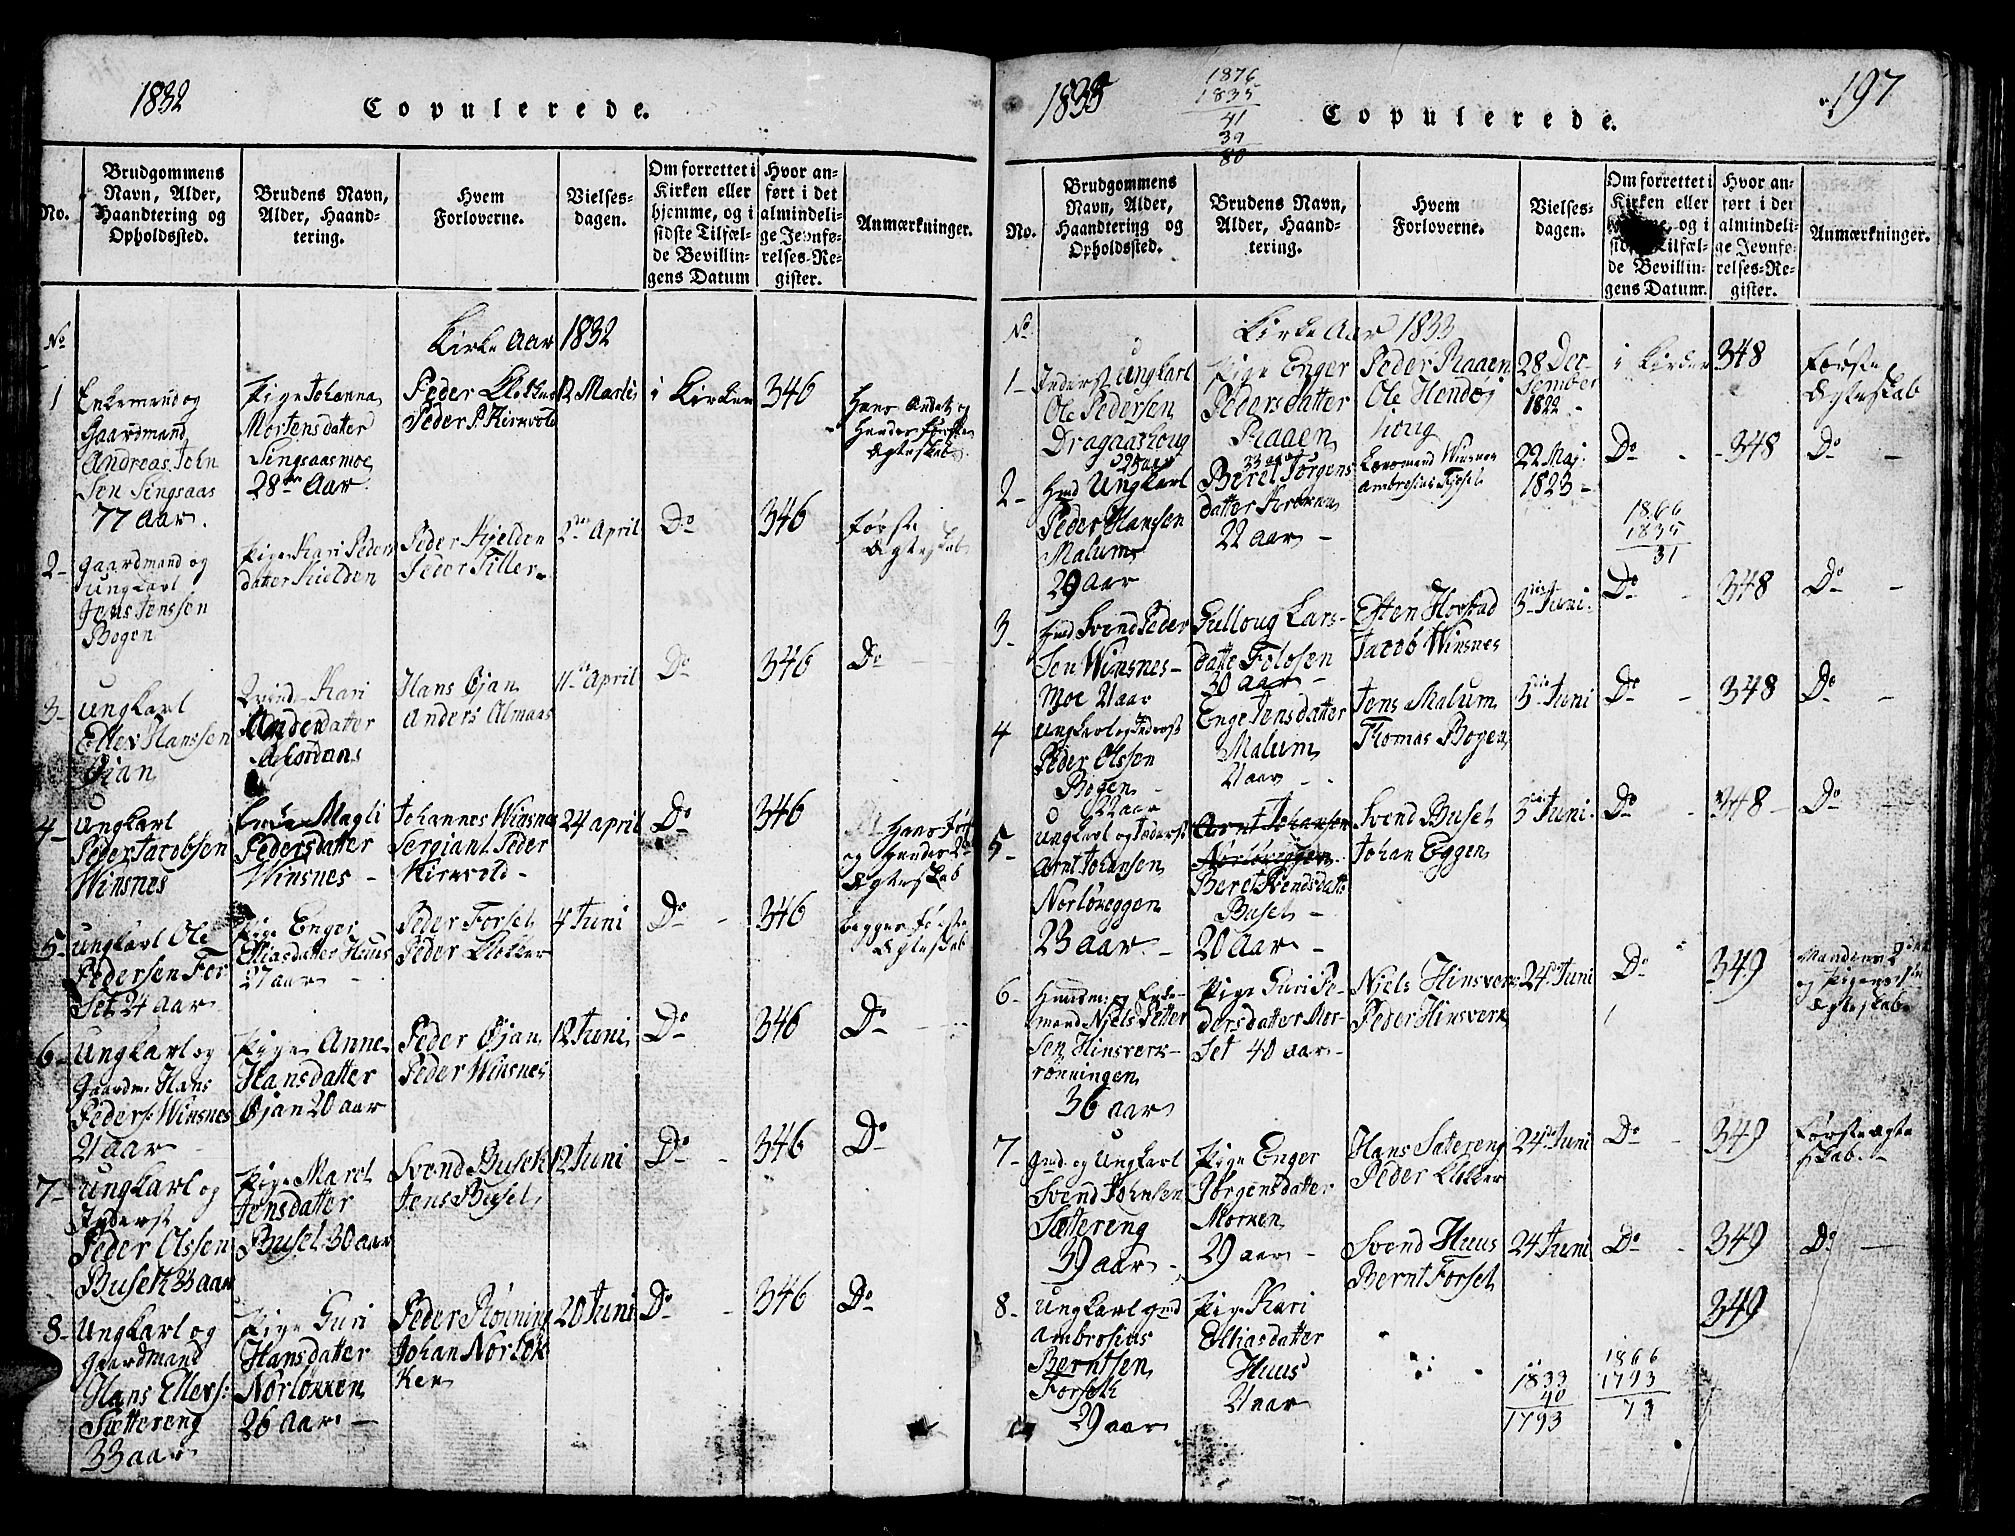 1832
Copulerede.
No.
Brudgommens
Navn, Alder,
Haandtering og
Opholdssted.
Brudens Navn,
Alder, Haand-
tering.
Hvem
Forloverne.
Vielses-
dagen.
Om forrettet i
Kirken eller
hjemme, og i
sidste Tilfæl-
de Bevillin-
gens Datum
Hvor an-
ført i det
almindeli-
ge Jevnfø-
relses-Re-
gister.
Anmærkninger.
No
Kirke Aar 1832
1
Enkemand og
Gaardmand
Andreas John
Sen Singsaas
77 Aar.
Pige Johanna
Mortensdatter
Singsaasmoe
28 Aar
Peder Klokker
Peder P. Kirkvold
12 Martii
i Kirken
346
Hans Andet og
Hendes første
Ægteskab
2
Gaardmand og
Ungkarl
Jens Jenssen
Bogen
Pige Kari Peders
datter Kielden
Peder Kjelden
Peder Tiller
2den April
Do
346
første
Ægteskab
3
Ungkarl
Eller Hanssen
Øjan
Kari
Andersdatter
Hans Øjan
Anders Almaas
11te April
Do
346
Do
4
Ungkarl
Peder Jacobsen
Winsnes
Enke Magli
Pedersdatter
Winsnes
Johannes Winsnes
Sergiant Peder
Kirkvold
24 april
Do
346
Hans før
og Hendes 2
Ægteskab
5
Ungkarl Ole
Pedersen For
Set 24 aar
Pige Enger
Eliasdatter Huus
27 aar
Peder Forset
Peder Klokker
4 Juni
Do
346
begges første
Ægteskab
6
Ungkarl og
Gaardm. Hans
Peders: Winsnes
21 aar
Pige Anne
Hansdatter
Øjan 20 aar
Peder Øjan
Peder Winsnes
12 Juni
Do
346
Do
7
Ungkarl og
Inderst
Peder Olssen
Buseth 33 aar
Pige Maret
Jensdatter
Buset 30 aar
Svend Buseth
Jens Buset
12 Juni
Do
346
Do
8
Ungkarl og
Gaardmand
Hans Ellers:
Sættereng
33 aar
Pige Guri
Hansdatter
Norløkken
26 Aar
Peder Rønning
Johan Norløk
ken
20 Juni
Do
346
Do
1833
1876
1835
41
39
80
Copulerede.
197
No.
Brudgommens
Navn, Alder,
Haandtering og
Opholdssted.
Brudens Navn,
Alder, Haand-
tering.
Hvem
Forloverne.
Vielses-
dagen.
Om forrettet i
Kirken eller
og i
Tilfæl-
de Bevillin-
gens Datum.
Hvor an-
ført i det
almindeli-
ge Jevnfø-
relses-Re-
gister.
Anmærkninger.
No
Kirke Aar 1833
1
Inderst Ungkarl
Ole Pedersen
Dragaashoug
25 aar
Pige Enger
Pedersdatter
Raaen
33 aar
Peder Raaen
Ole Hendøj
houg
28 Dec
sember
1822
i Kirken
348
Første
Ægteskab
2
Hmd Ungkarl
Peder Hanssen
Malum
29 Aar
Beret Jørgens
datter
22 Aar
Lænsmand Winsnes
Ambrosius Forset
22 Maj
1823
Do
348
Do
1866
1835
31
3
Hmd Svend Peder
Sen Winsnes-
Moe 21 aar
Gulloug Lars-
datter Folosen
30 aar
Esten Hovstad
Jacob Winsnes
3die Juni
Do
348
Do
4
Ungkarl og Inderst
Peder Olssen
Bogen
22 aar
Enge Jensdatter
Malum
21 aar
Jens Malum
Thomas Bogen
3die Juni
Do
348
Do
5
Ungkarl og Inderst
Arnt Johansen
Norløreggen
23 aar
Arnt Johansen
Norløreggen
Beret Svendsdatter
Buset
20 Aar
Svend Buset
Johan Eggen
3die Juni
Do
348
Do
6
Huusm. og Enke-
mand Niels Petter
Sen Hinsverk-
rønningen
36 aar
Pige Guri Pe-
dersdatter Mor-
Set 40 aar
Niels Hinsverk
Peder Hinsverk
24de Juni
Do
349
Mandens 2det
og Pigens 1ste
Ægteskab
7
Gmd. og Ungkarl
Svend Johnsen
Sættereng
39 aar
Pige Enger
Jørgensdatter
Morken
29 aar
Hans Satereng
Peder Klokker
24de Juni
Do
349
Første Ægte
skab
8
Ungkarl gmd
Ambrosius
Berntsen
Forseth
29 aar
Pige Kari
Elliasdatter
Huus
21 aar
Svend Huus
Bernt Forset
24 Juni
Do
349
Do
349
1833
40
1793
1866
1793
73